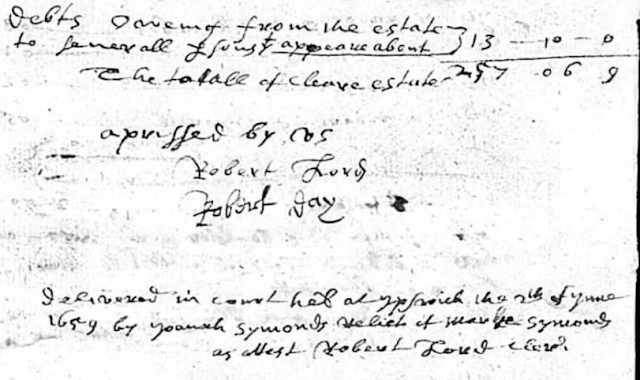 debts oweing from the estate
to severall psons appeare about } 13 - 10 - 0
The totall of cleare estate 257 06 9
aprissed by us
Robert Lord
Robert Day
delivered in court held at Ipswich the of June
1659 by Joanah Symonds Relict of Marke Symonds
as attest Robert Lord cler.